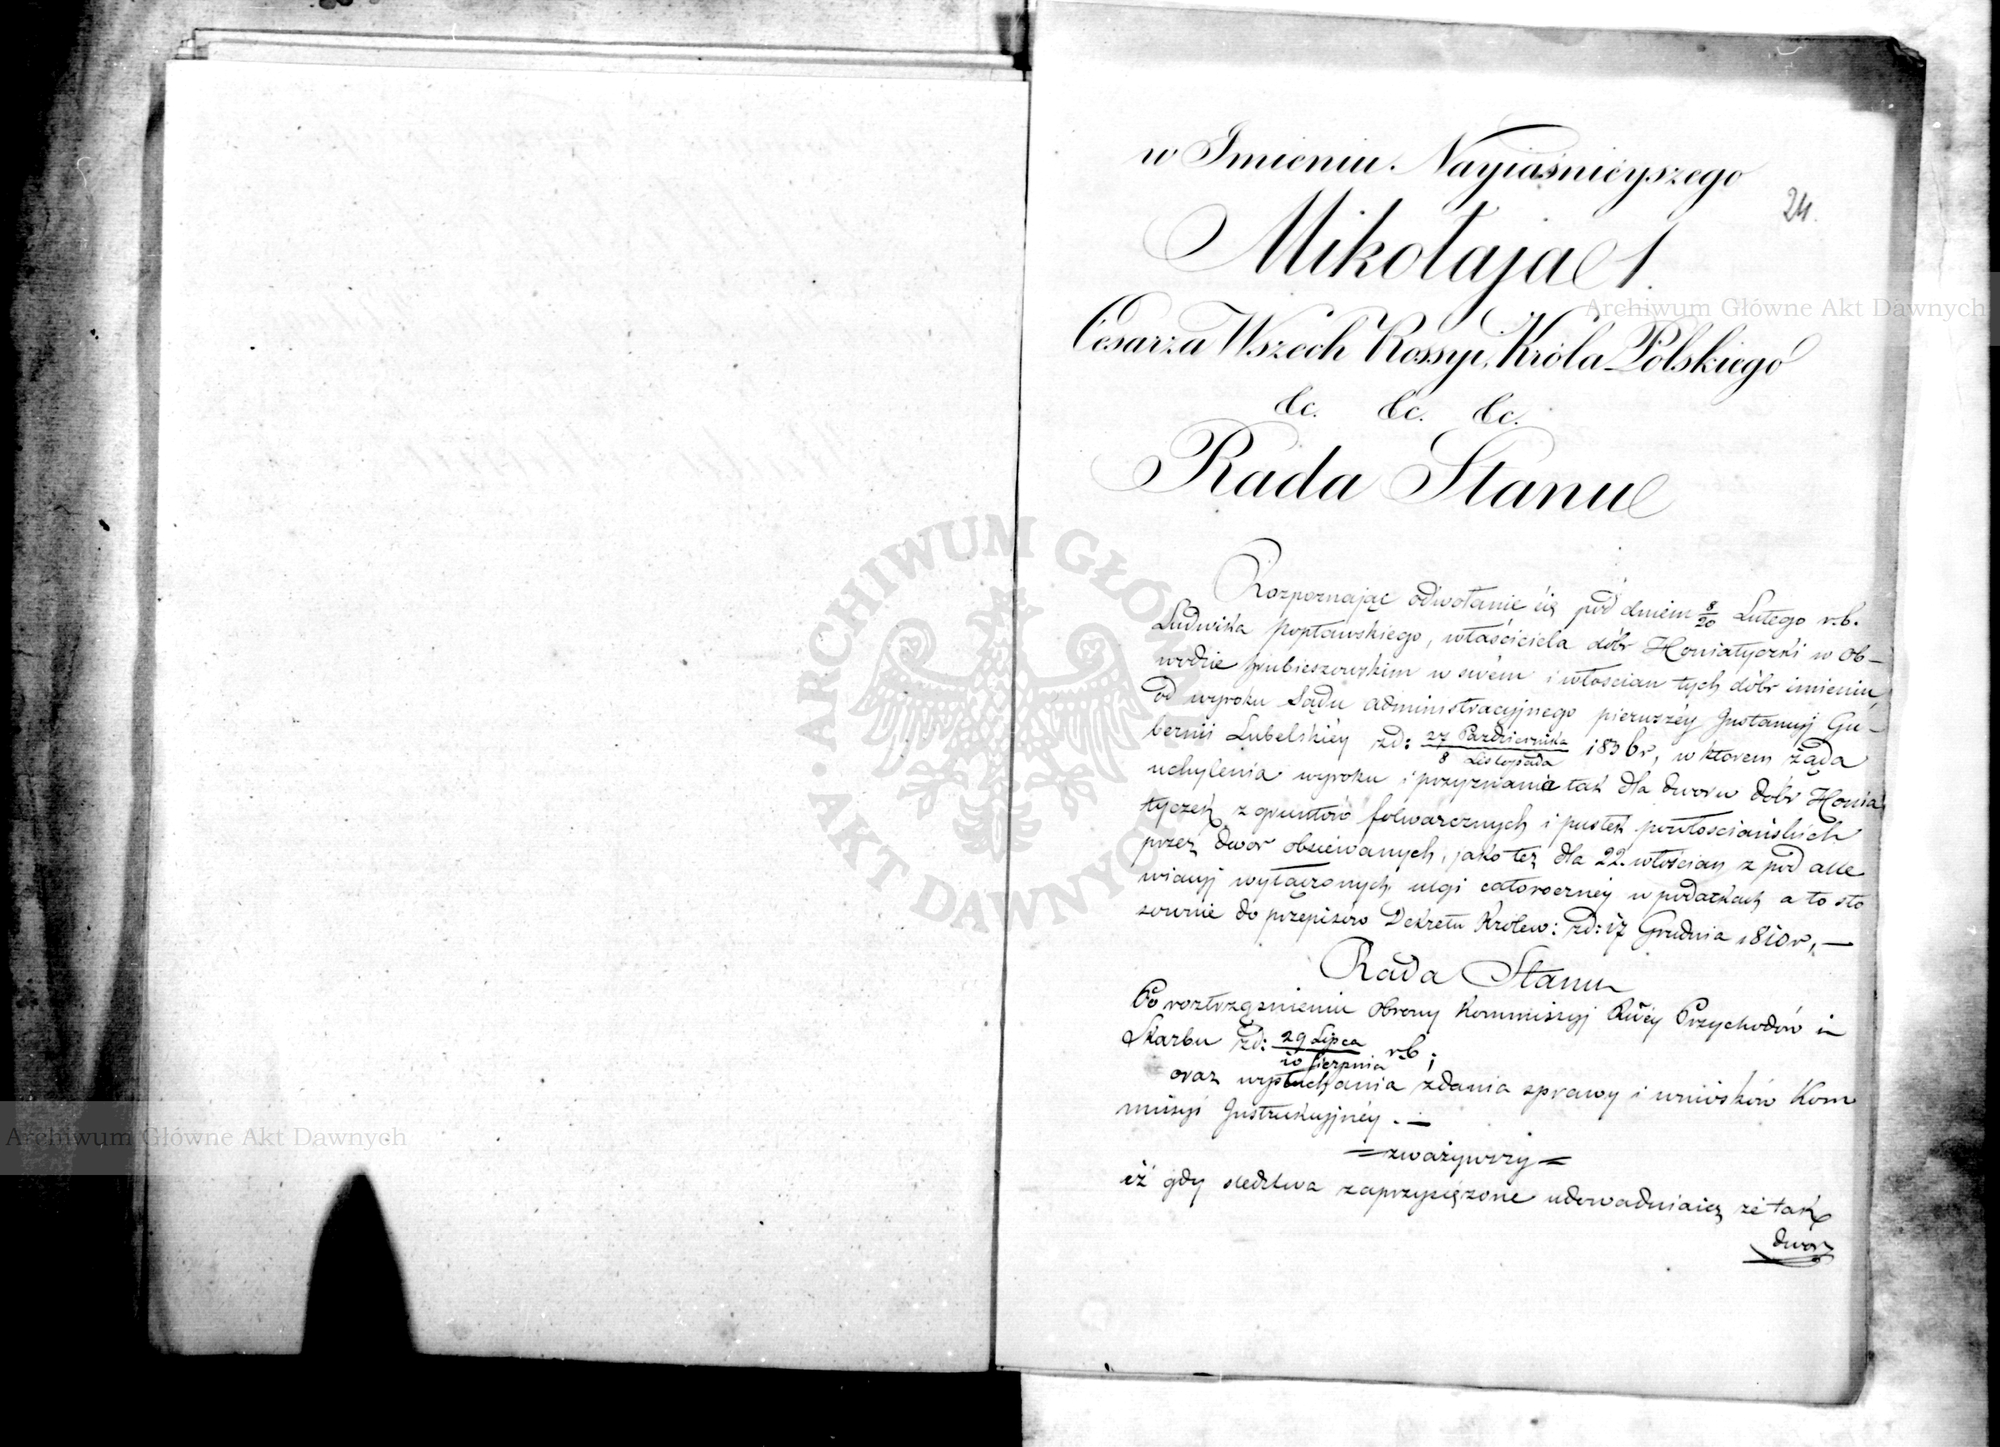 w Imieniu Nayiaśnieyszego
24.
Mikołaja 1.
Cesarza Wszech Rossyi, Króla Polskiego
&c. &c. &c.
Rada Stanu
Rozpoznając odwołanie się pod dniem 8/20 Lutego r.b.
Ludwika Popławskiego, właściciela dóbr Honiatyczki w Ob-
wodzie Hrubieszowskim w swém i włościan tych dóbr imieniu,
od wyroku Sądu administracyjnego pierwszéy Instancyi Gu-
bernii Lubelskiéy zd: 27 Października/8 Listopada 1836 r, w którem żąda
uchylenia wyroku i przyznania tak dla dworu dóbr Honia-
tyczek z gruntów folwarcznych i pustek powłościańskich
przez dwór obsiewanych, jako też dla 22. włościan z pod alle
wiacyi wyłączonych ulgi całoroczney w podatkach a to sto
sownie do przepisów Dekretu Królew: zd: 17 Grudnia 1810 r, —
Rada Stanu
Po roztrząśnieniu obrony Kommissyi Rwéy Przychodów i
Skarbu zd: 29 Lipca/10 Sierpnia r.b;
oraz wysłuchania zdania sprawy i wniosków Kom
missyi Instrukcyjnéy. —
= zważywszy =
iż gdy śledztwa zaprzysiężone udowadniaią, że tak
dwór
Archiwum Główne Akt Dawnych
Archiwum Główne Akt Dawnych
ARCHIWUM GŁÓWNE AKT DAWNYCH